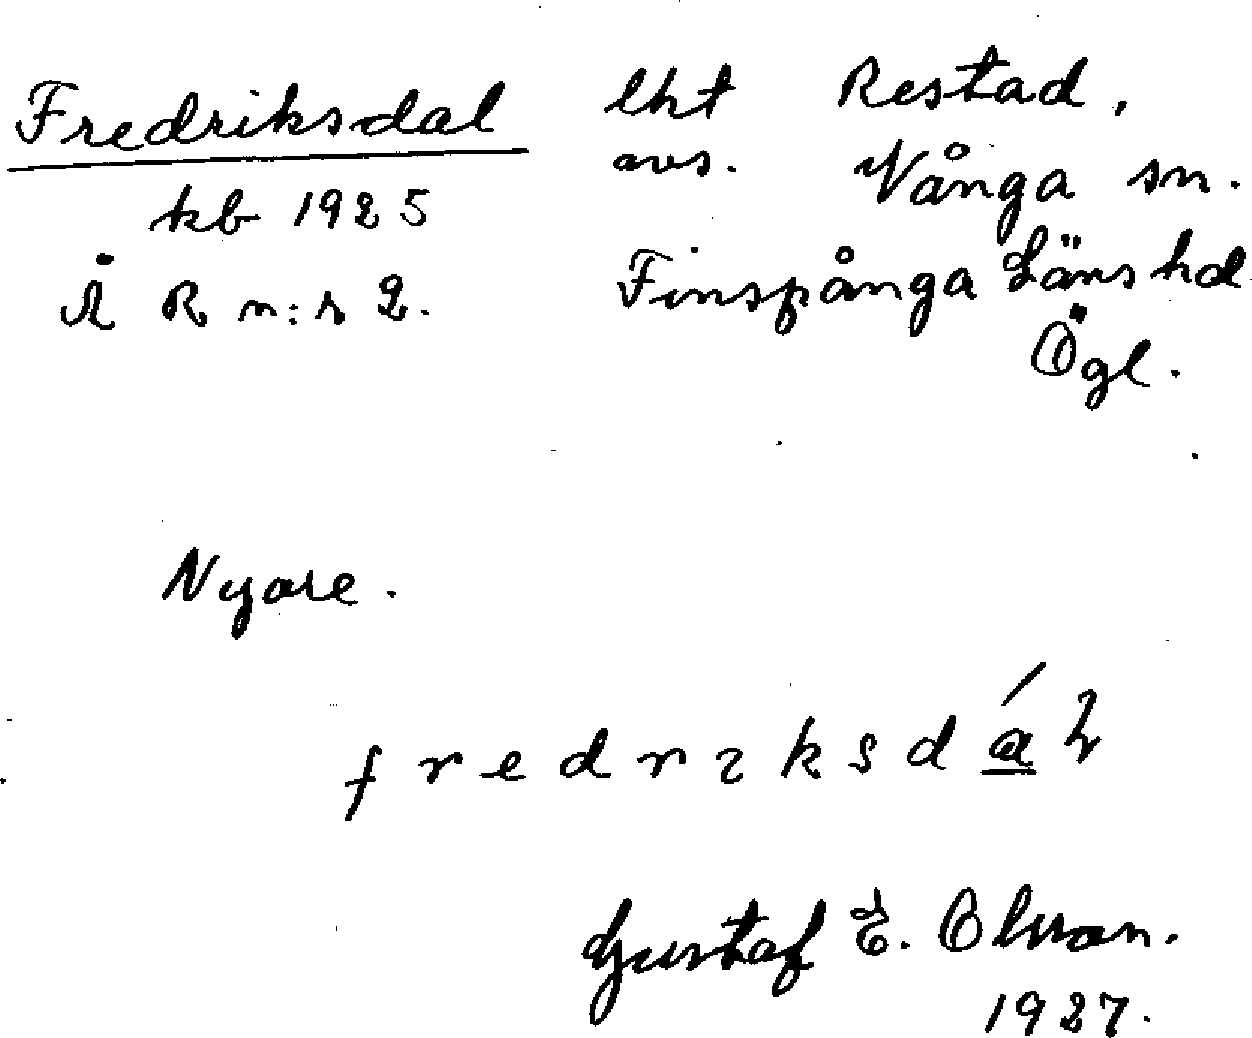 Fredriksdal lht Restad,
avs. Vånga sn.
kb 1925
Å R n:r 2. Finspånga Läns hd
Ögl.
Nyare.
fredrıksdál
Gustaf E. Olsson.
1927.